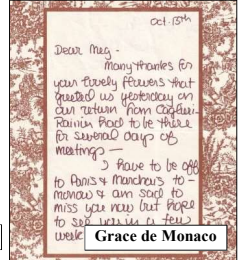 Oct. 13th
Dear Meg -
Many thanks for
your lovely flowers that
greeted us yesterday on
our return from Cagliari -
Rainier had to be there
for several days of
meetings —
I have to be off
to Paris & to-
morrow & am sad to
miss you now but hope
to see you in a few
week
Grace de Monaco